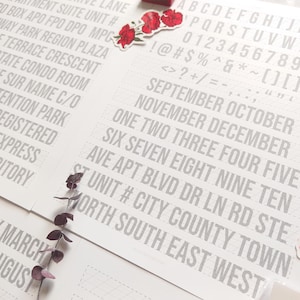 ENT SUITE UNIT #
BOX APO FPO DPO
WAY PARK PLAZA
TERRACE CRESCENT
STATE CONDO ROOM
SUR NAME C/O
VENTION PARK
REGISTERED
EXPRESS
RITORY
MARCH
AUGUST
A B C D E F G H I J K L M N O P Q R S
0 1 2 3 4 5 6 7 8 9
! @ # $ % ^ & * ~ ( ) [ ]
< > ? + / =
SEPTEMBER OCTOBER
NOVEMBER DECEMBER
ONE TWO THREE FOUR FIVE
SIX SEVEN EIGHT NINE TEN
AVE APT BLVD DR LN RD STE
ST UNIT # CITY COUNTY TOWN
NORTH SOUTH EAST WEST